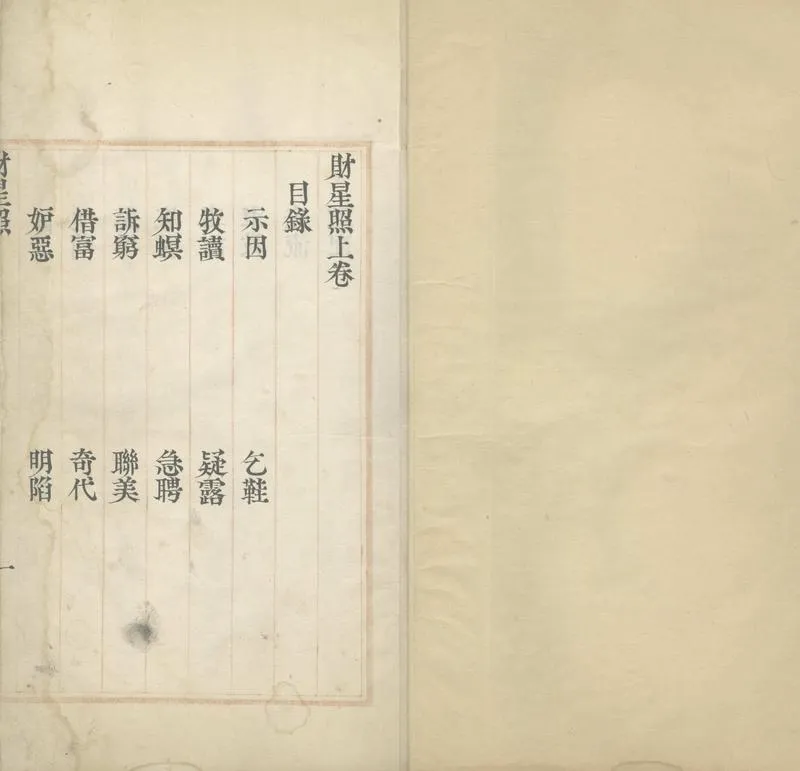 財星照上卷
目錄
示因 乞鞋
牧讀 疑露
知螟 急聘
訴窮 聯美
借富 奇代
妒惡 明陷
財星照
一